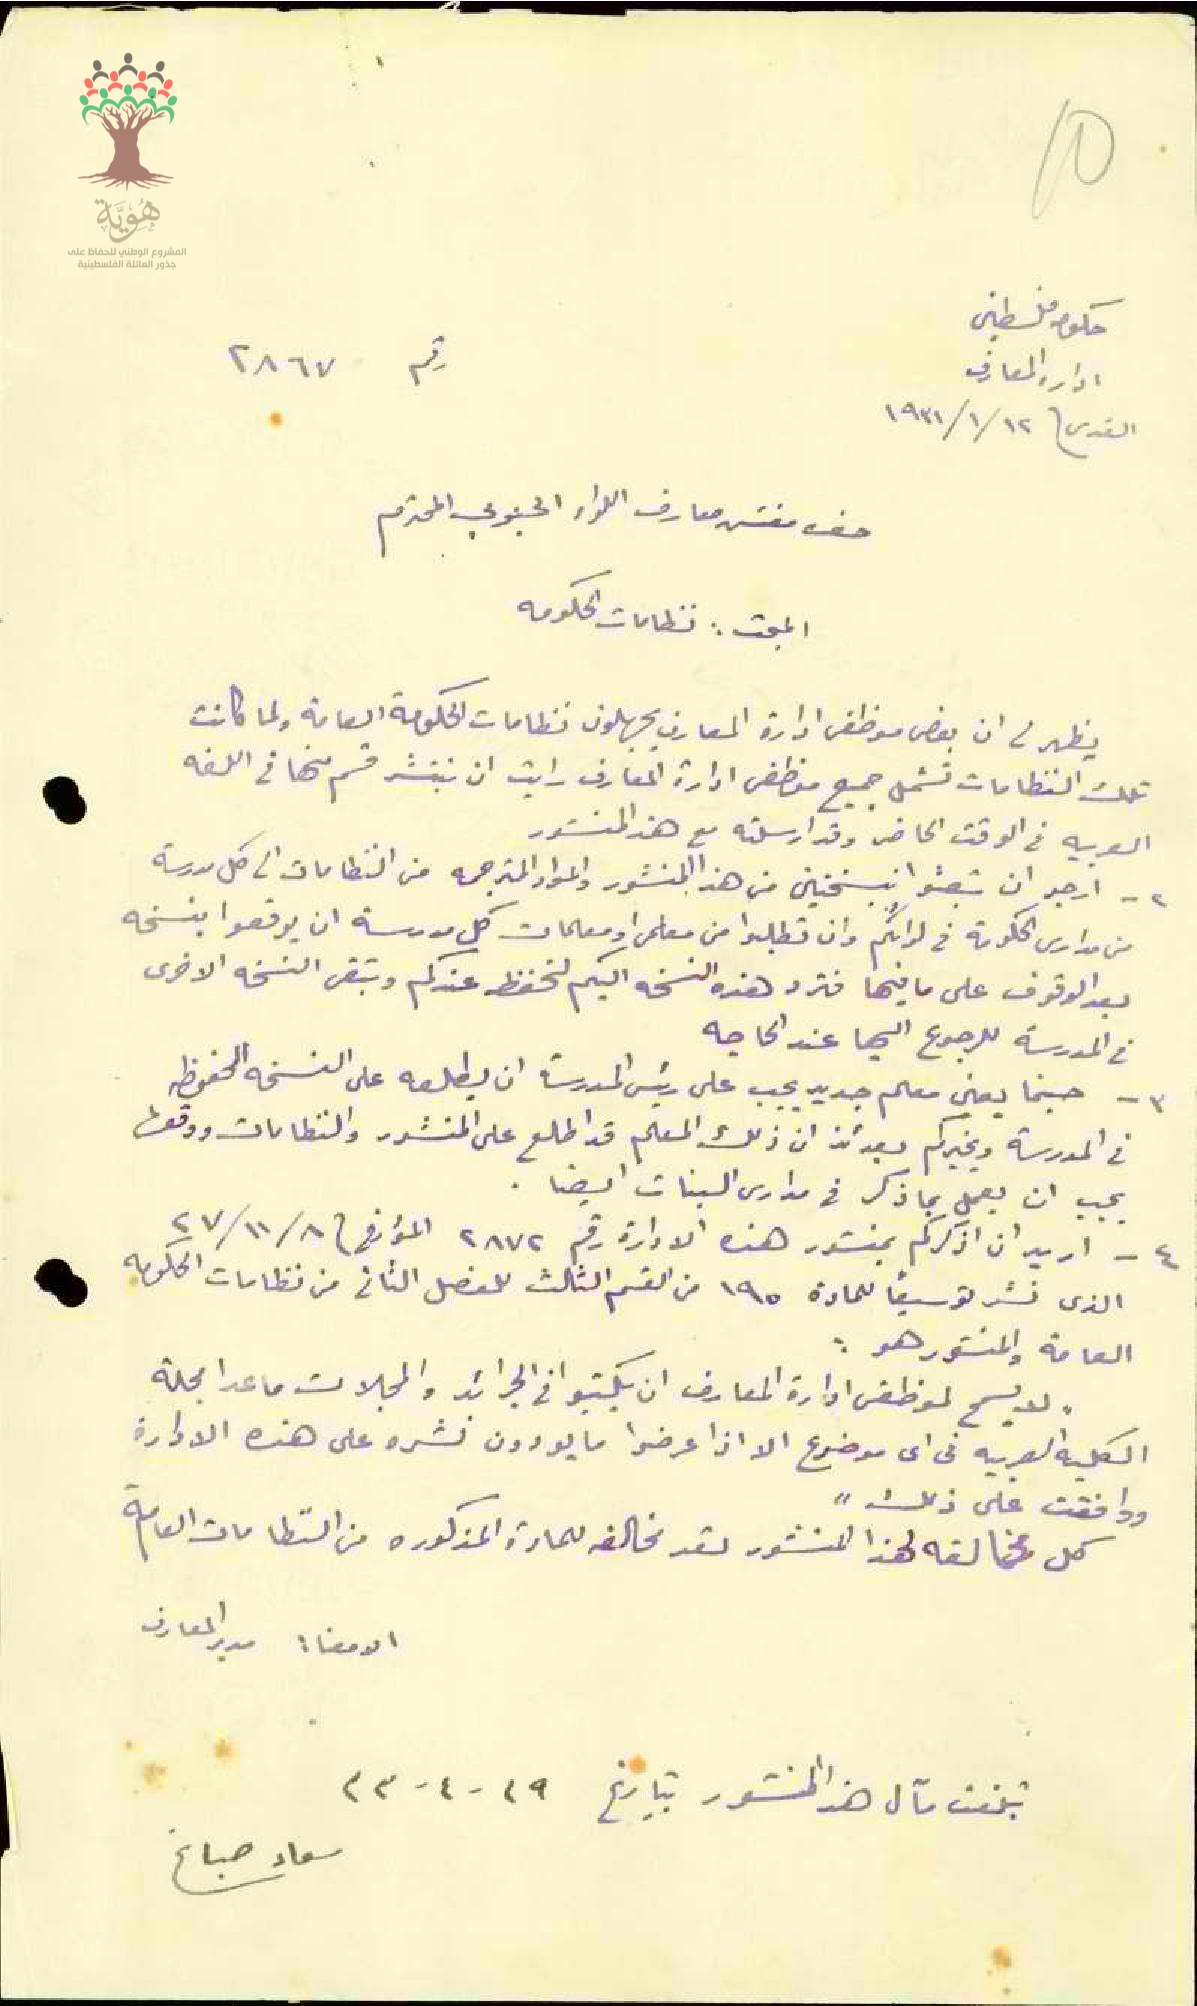 هُويَّة
المشروع الوطني للحفاظ على
جذور العائلة الفلسطينية
حكومة فلسطين
ادارة المعارف
القدس ١٢/١/١٩٣١
رقم ٢٨٦٧
حضرة مفتش معارف اللواء الجنوبي المحترم
المبحث : نظامات الحكومه
يظهر لي ان بعض موظفي ادارة المعارف يجهلون نظامات الحكومة العامة ولما كانت
تلك النظامات تشمل جميع موظفي ادارة المعارف رايت ان ينشر قسم منها في اللغه
العربيه في الوقت الحاضر وقد ارسلته مع هذا المنشور
٢ – ارجو ان تبعثوا بنسختين من هذا المنشور والمواد المترجمه من النظامات الى كل مدرسة
من مدارس الحكومة في لوائكم وان تطلبوا من معلمي او معلمات كل مدرسة ان يوقعوا بنسخه
بعد الوقوف على ما فيها فترد هذه النسخه اليكم لتحفظ عندكم وتبقى النسخه الاخرى
في المدرسة للرجوع اليها عند الحاجه
٣ – حينما يعين معلم جديد يجب على رئيس المدرسة ان يطلعه على النسخه المحفوظه
في المدرسة ويخبركم بعدئذ ان ذلك المعلم قد اطلع على المنشور والنظامات ووقعها
يجب ان يعمل بما ذكر في مدارس البنات ايضا .
٤ – اريد ان اذكركم بمنشور هذه الادارة رقم ٢٨٧٢ المؤرخ ٨/١١/٢٧
الذي نشر توسيعًا للمادة ١٩٥ من القسم الثالث للفصل الثاني من نظامات الحكومه
العامة والمنشور هو :
" لا يسمح لموظفي ادارة المعارف ان يكتبوا في الجرائد والمجلات ما عدا مجلة
الكلية العربيه في اي موضوع الا اذا عرضوا ما يودون نشره على هذه الادارة
ووافقت على ذلك "
كل مخالفه لهذا المنشور تعد مخالفه للمادة المذكوره من النظامات العامة
الامضاء : مدير المعارف
تبلغت مآل هذا المنشور بتاريخ ٢٩-٤-٣٣
سعاد صباغ